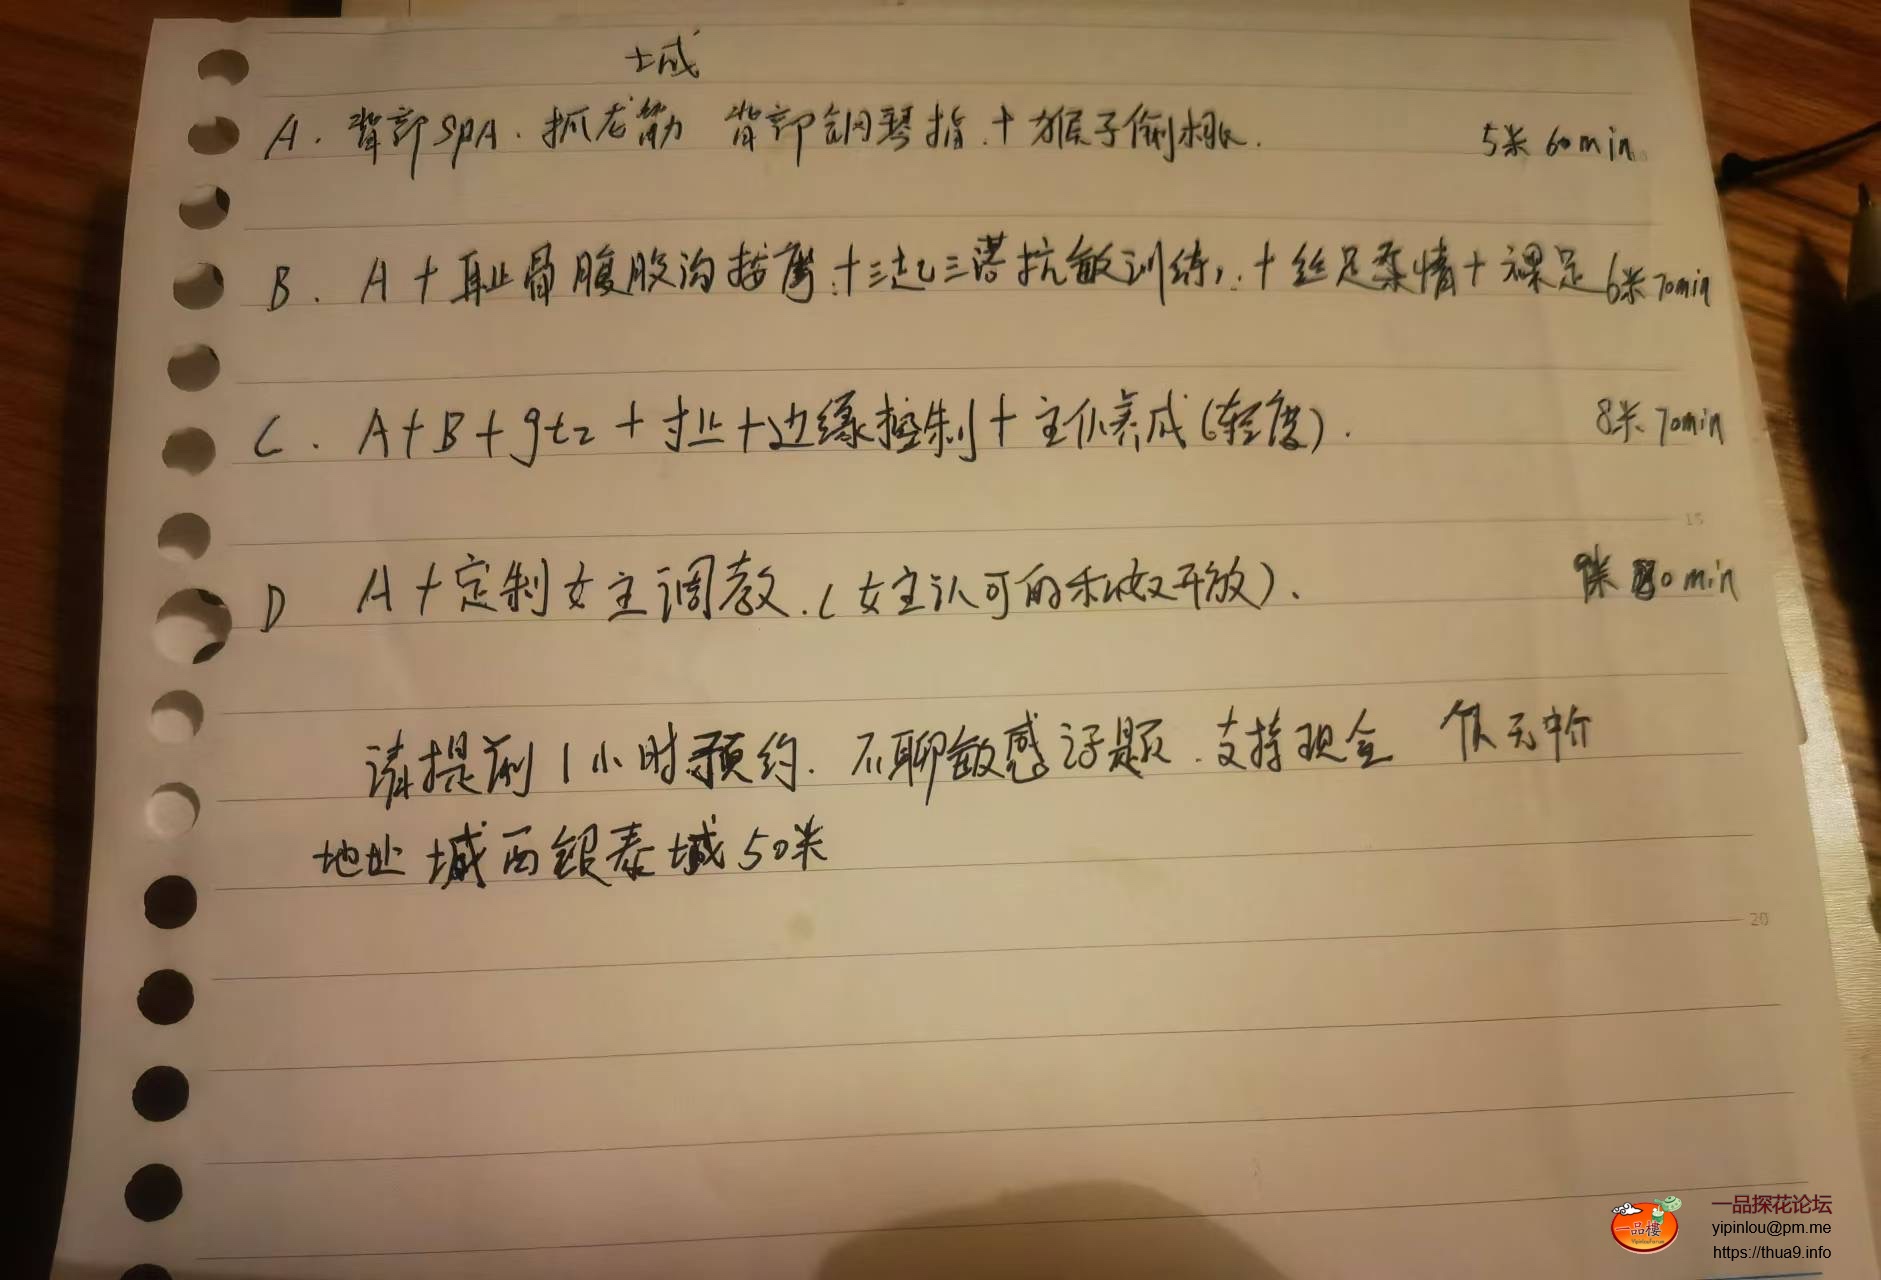 城
A. 背部SPA. 抓龙筋 背部钢琴指.+猴子偷桃. 5米 60min
B. A+耻骨腹股沟按摩.+三起三落抗敏训练,.+丝足柔情+裸足 6米 70min
C. A+B+gtz+寸止+边缘控制+主仆养成(轻度). 8米 70min
D A+定制女主调教.(女主认可的私奴开放). 米 0min
请提前1小时预约. 不聊敏感话题. 支持现金 无中介
地址 城西银泰城50米
15
20
一品樓
一品探花论坛
yipinlou@pm.me
https://thua9.info